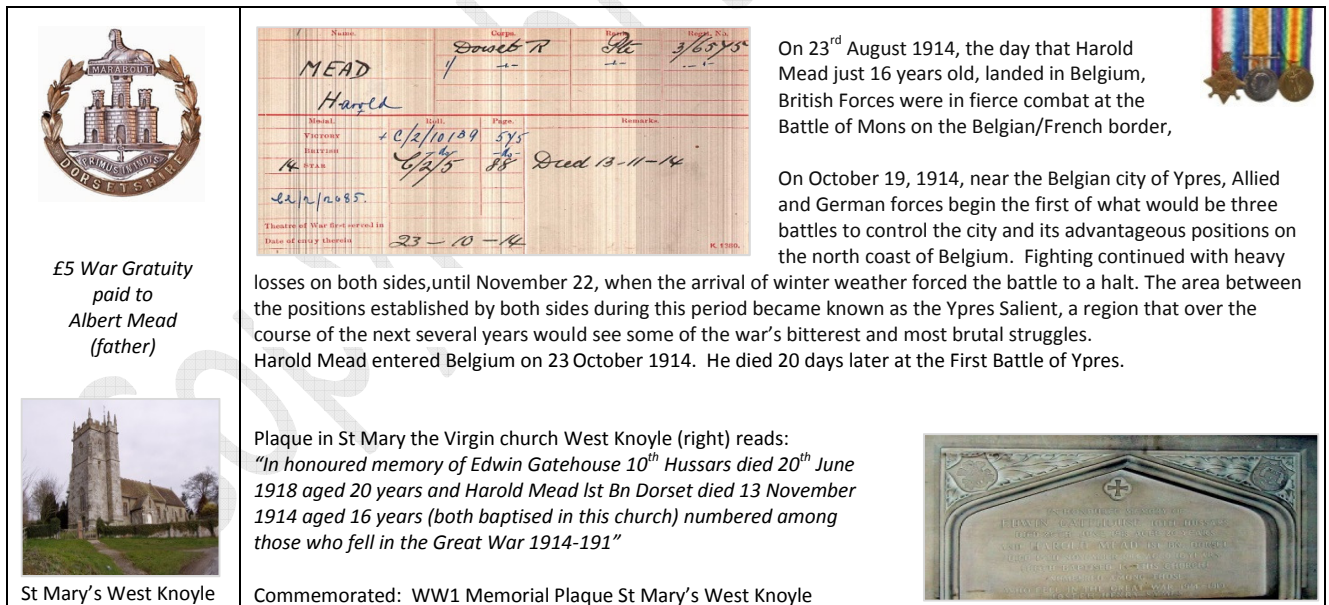 MARABOUT
PRIMUS IN INDIS
DORSETSHIRE
£5 War Gratuity
paid to
Albert Mead
(father)
St Mary's West Knoyle
Name. Corps. Rank. Regtl. No.
MEAD Dorset R Pte 3/6545
Harold
Medal. Roll. Page. Remarks.
VICTORY + C/2/101B9 545
BRITISH -do- -do-
14 STAR C/2/5 88 Died 13-11-14
Theatre of War first served in
Date of entry therein 23-10-14
K. 1380.
On 23rd August 1914, the day that Harold
Mead just 16 years old, landed in Belgium,
British Forces were in fierce combat at the
Battle of Mons on the Belgian/French border,
On October 19, 1914, near the Belgian city of Ypres, Allied
and German forces begin the first of what would be three
battles to control the city and its advantageous positions on
the north coast of Belgium. Fighting continued with heavy
losses on both sides,until November 22, when the arrival of winter weather forced the battle to a halt. The area between
the positions established by both sides during this period became known as the Ypres Salient, a region that over the
course of the next several years would see some of the war's bitterest and most brutal struggles.
Harold Mead entered Belgium on 23 October 1914. He died 20 days later at the First Battle of Ypres.
Plaque in St Mary the Virgin church West Knoyle (right) reads:
"In honoured memory of Edwin Gatehouse 10th Hussars died 20th June
1918 aged 20 years and Harold Mead lst Bn Dorset died 13 November
1914 aged 16 years (both baptised in this church) numbered among
those who fell in the Great War 1914-191"
Commemorated: WW1 Memorial Plaque St Mary's West Knoyle